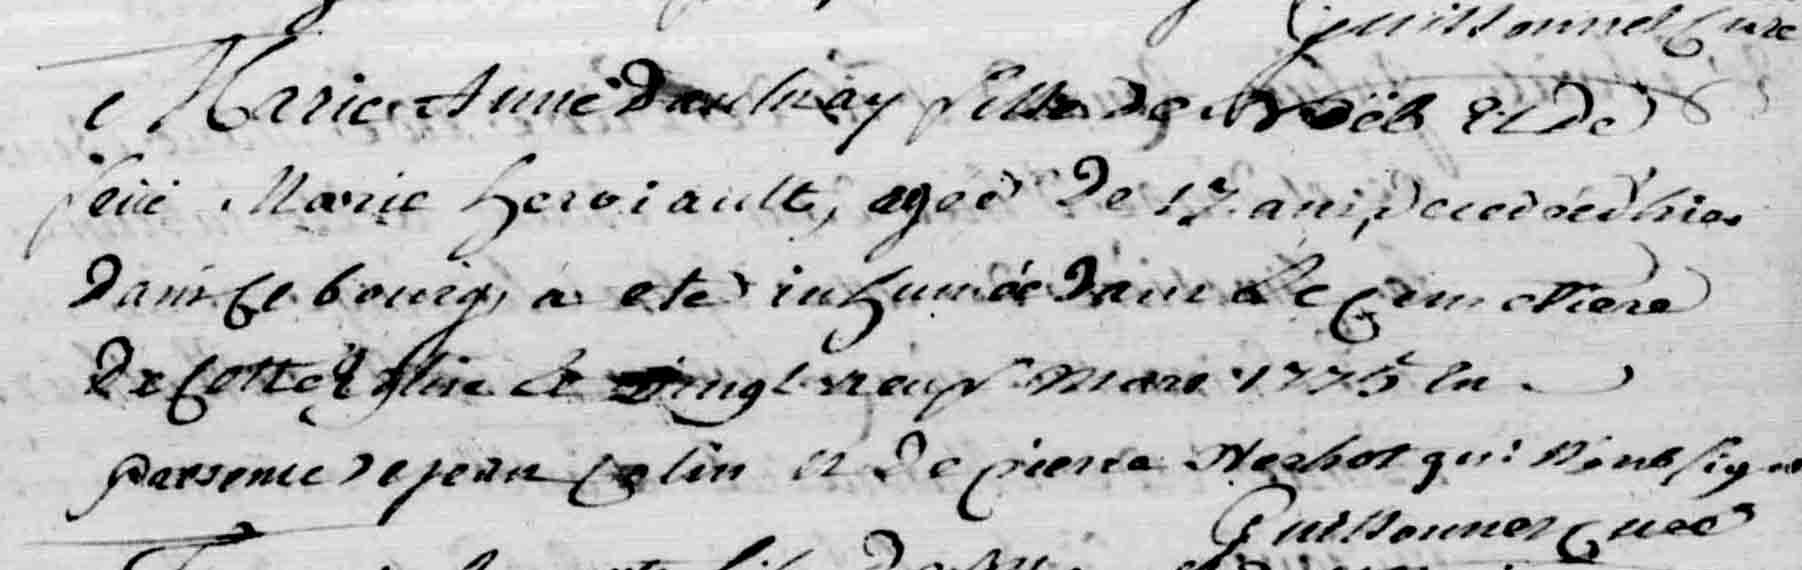 Guillonnet Curé
Marie Anne Daulnay fille de Noël et de
feüe Marie Heroiault, agée de 17 ans, decedée d'hier
dans ce bourg, a eté inhumée dans le cimetiere
de cette Eglise le vingt neuf Mars 1775 en
presence de jean Colin et de pierre Herbot qui n'ont signé
Guillonnet Curé